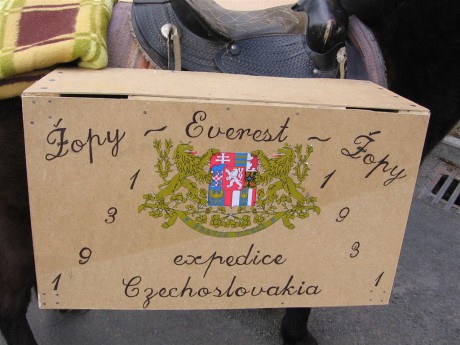 Žopy ~ Everest ~ Žopy
1 1
3 9
9 expedice 3
1 Czechoslovakia 1